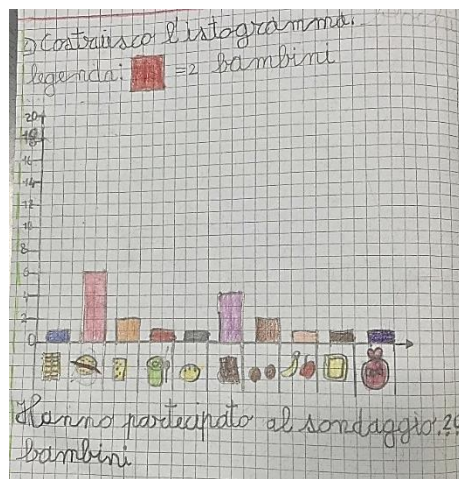 2) Costruisco l'istogramma.
legenda: = 2 bambini
20
18
16
14
12
10
8
6
4
2
0
Hanno partecipato al sondaggio.
bambini